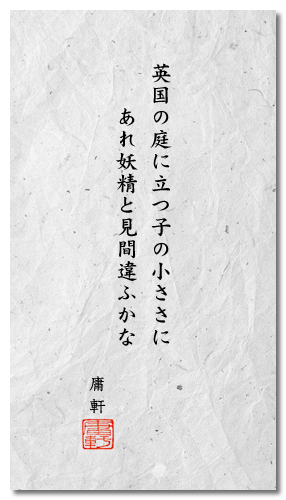 英国の庭に立つ子の小ささに
あれ妖精と見間違ふかな
庸軒